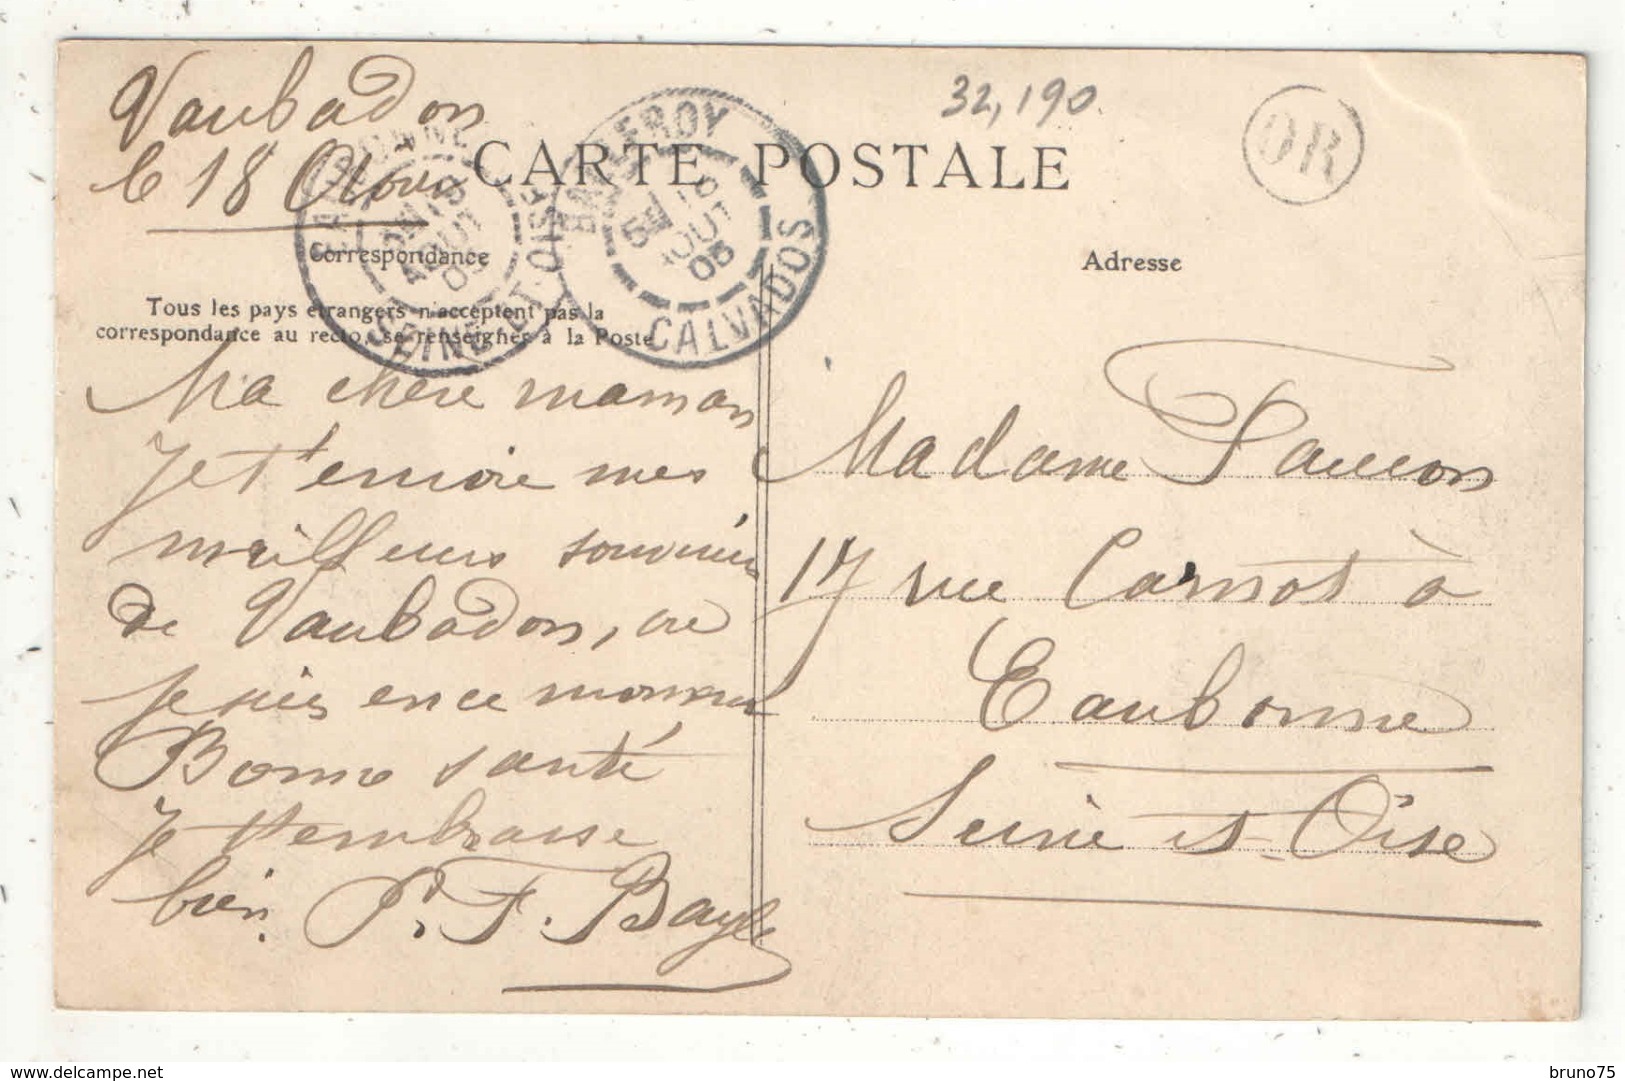 Vaubadon
le 18 Aout
32,190.
OR
CARTE POSTALE
BALLEROY
CALVADOS
18
AOUT
SEINE-ET-OISE
AOUT
Correspondance
Tous les pays étrangers n'acceptent pas la
correspondance au recto, se renseigner à la Poste
Ma chère maman
Je t'envoie mes
meilleurs souvenirs
de Vaubadon, ou
je suis en ce moment
Bonne santé
Je t'embrasse
bien. P. F. Bayle
Adresse
Madame Faucon
17 rue Carnot à
Eaubonne
Seine et-Oise
www.delcampe.net
bruno75